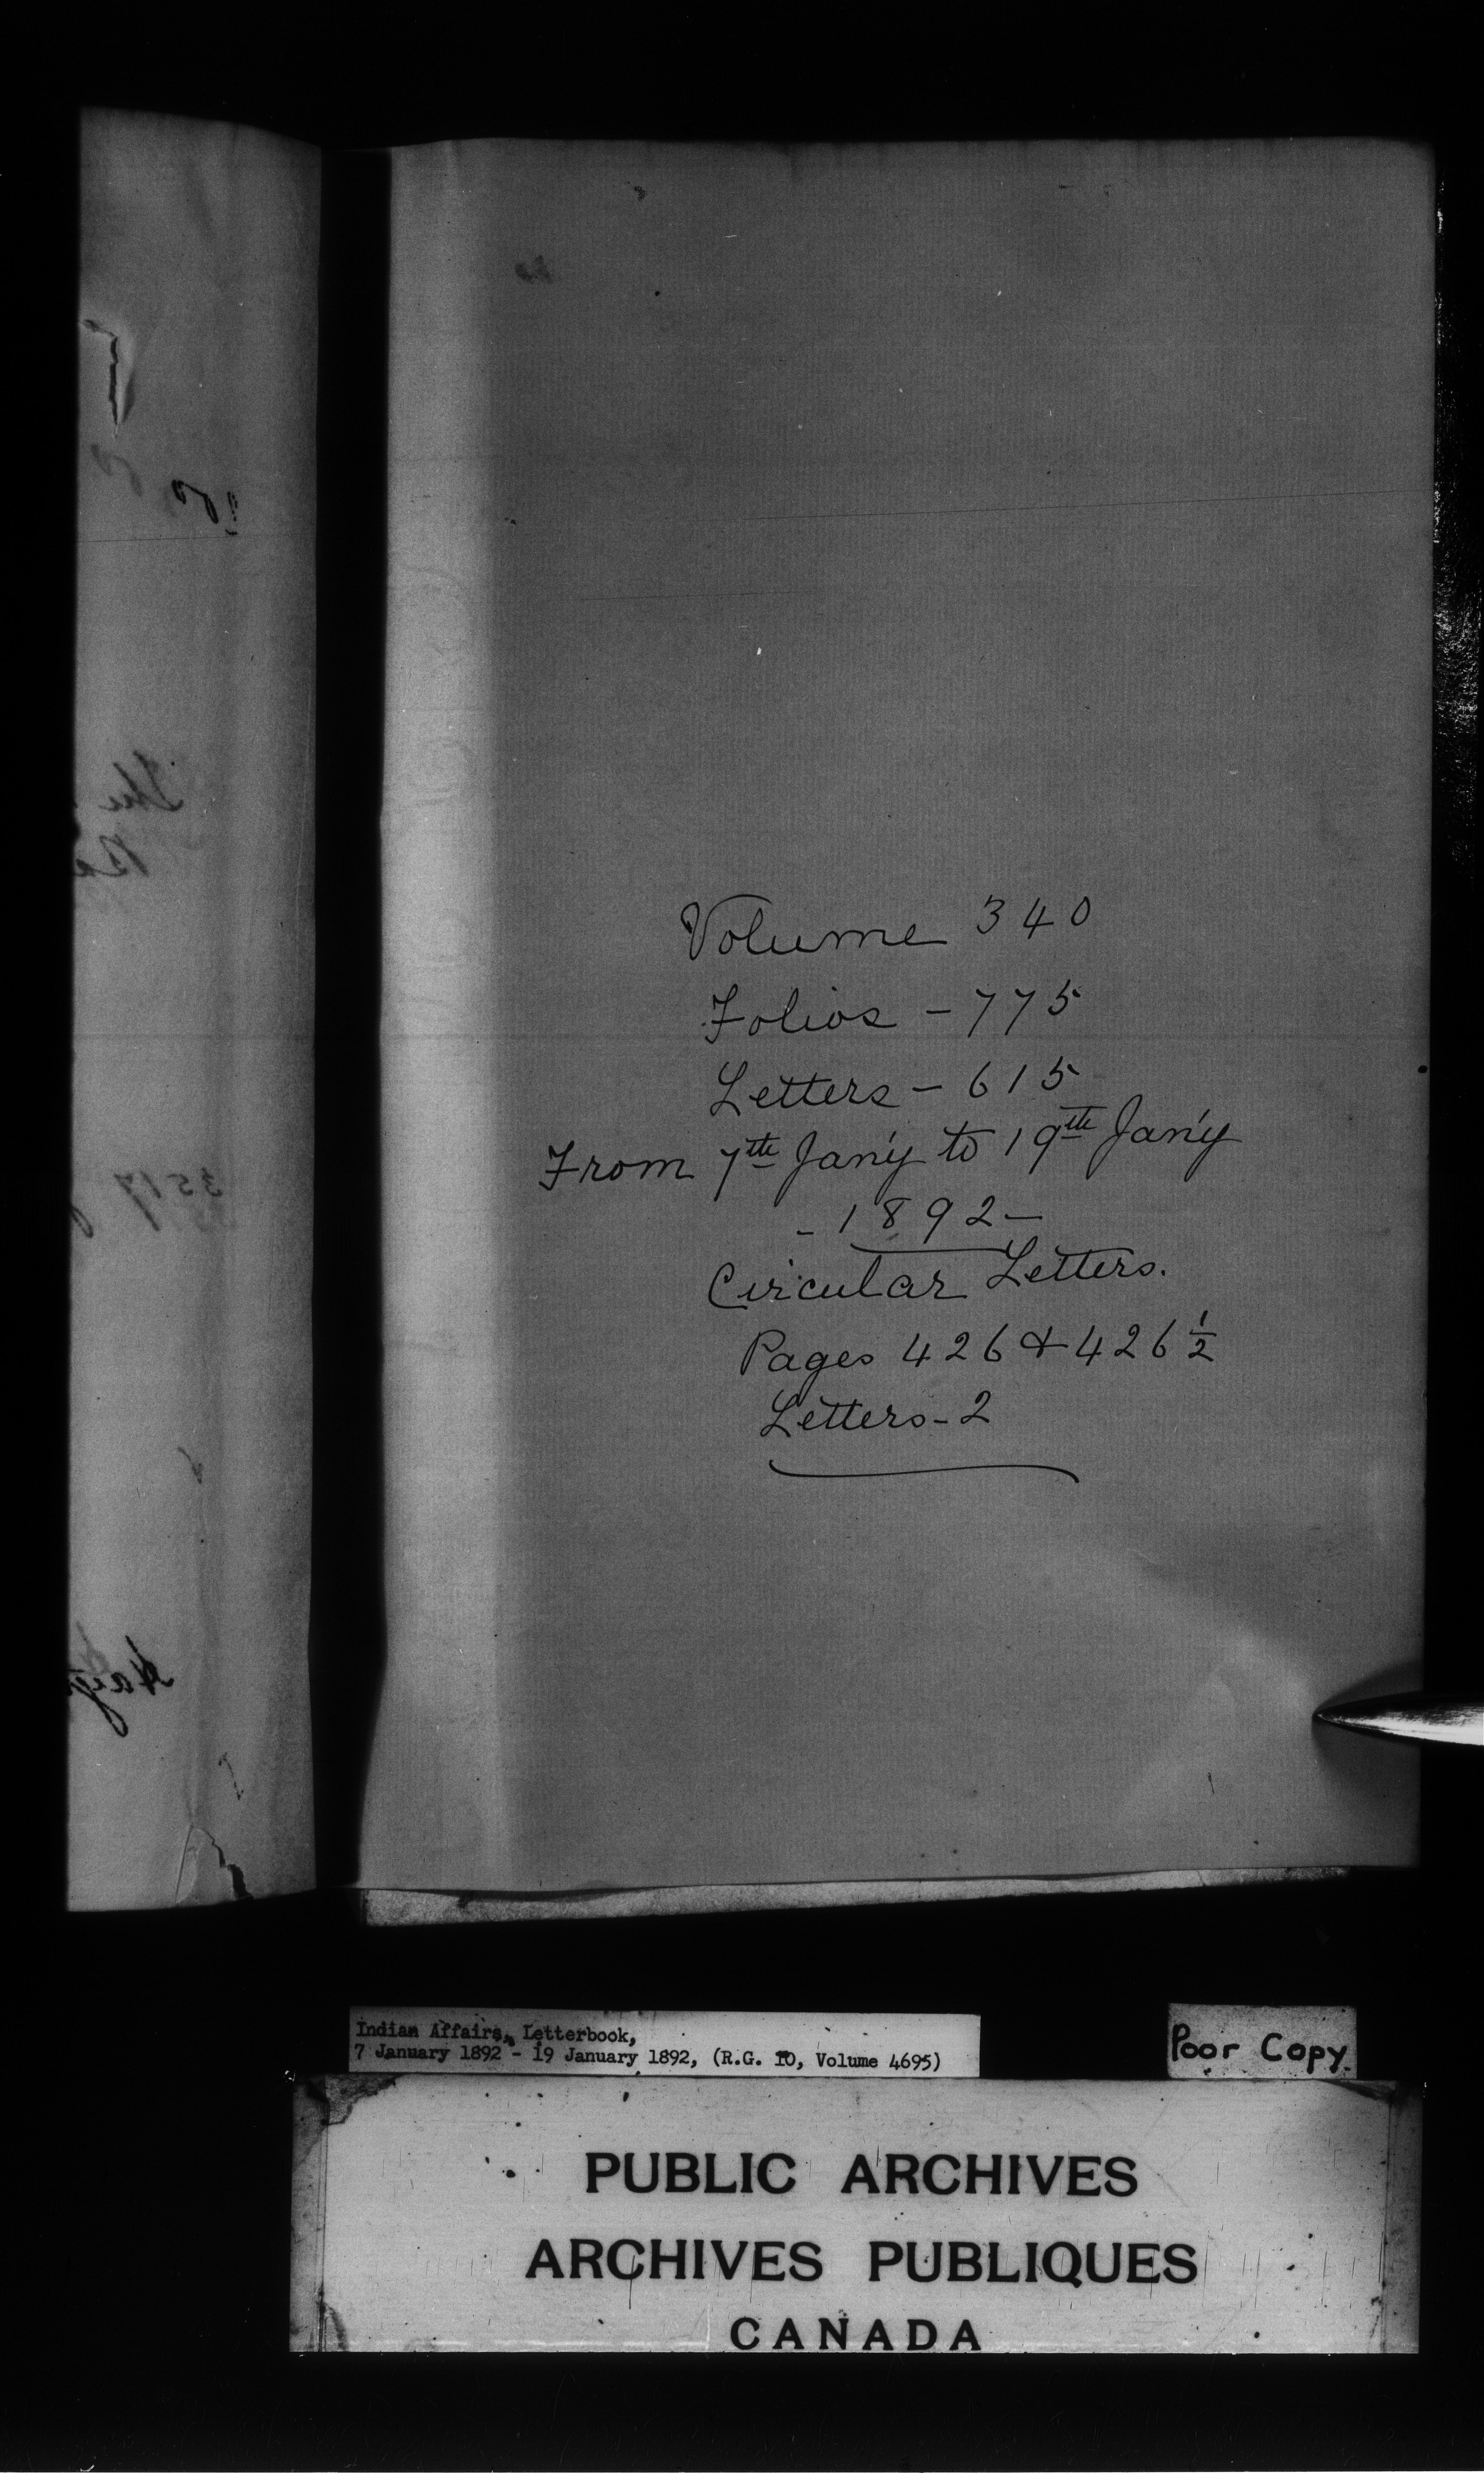 Volume 340
Folios - 775
Letters - 615
From 7th Jan'y to 19th Jan'y
- 1892 -
Circular Letters.
Pages 426 & 426 1/2
Letters - 2
Indian Affairs, Letterbook,
7 January 1892 - 19 January 1892, (R.G. 10, Volume 4695)
Poor Copy.
PUBLIC ARCHIVES
ARCHIVES PUBLIQUES
CANADA